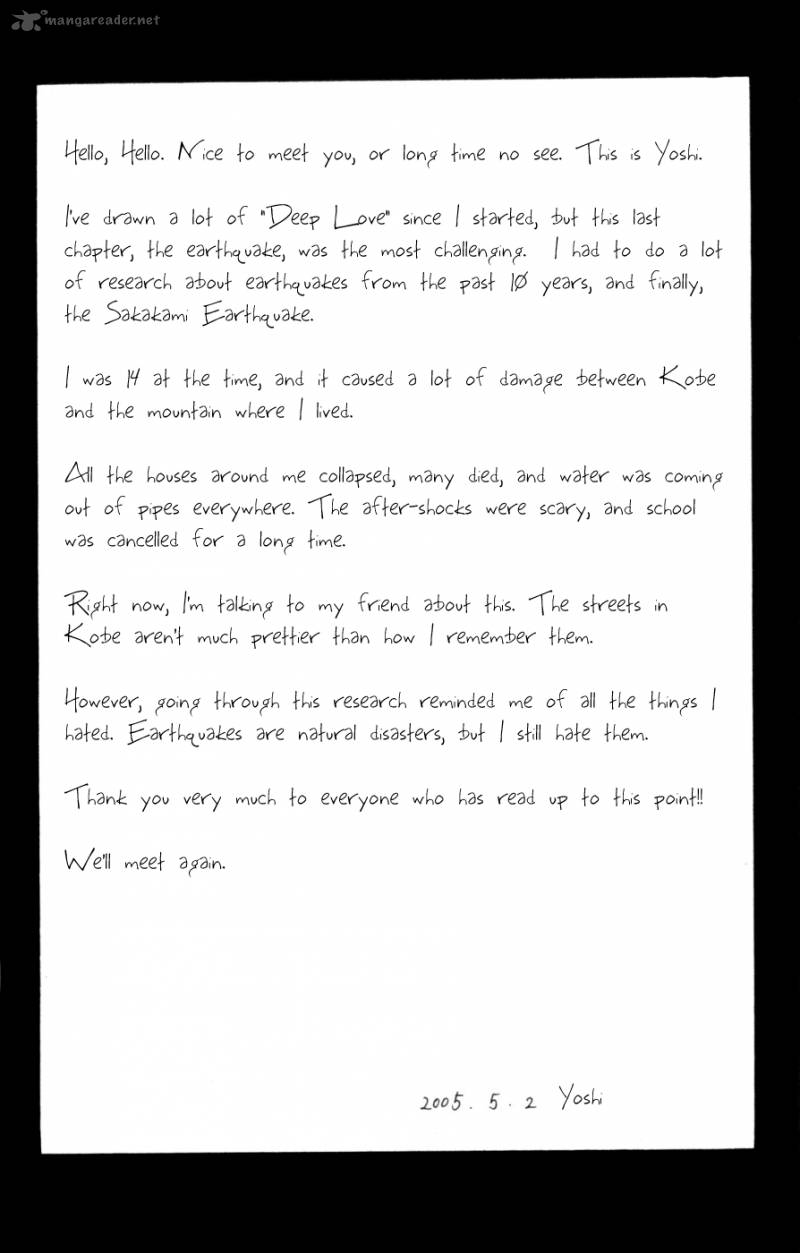 mangareader.net
Hello, Hello. Nice to meet you, or long time no see. This is Yoshi.
I've drawn a lot of "Deep Love" since I started, but this last
chapter, the earthquake, was the most challenging. I had to do a lot
of research about earthquakes from the past 10 years, and finally,
the Sakakami Earthquake.
I was 14 at the time, and it caused a lot of damage between Kobe
and the mountain where I lived.
All the houses around me collapsed, many died, and water was coming
out of pipes everywhere. The after-shocks were scary, and school
was cancelled for a long time.
Right now, I'm talking to my friend about this. The streets in
Kobe aren't much prettier than how I remember them.
However, going through this research reminded me of all the things I
hated. Earthquakes are natural disasters, but I still hate them.
Thank you very much to everyone who has read up to this point!!
We'll meet again.
2005. 5. 2 Yoshi